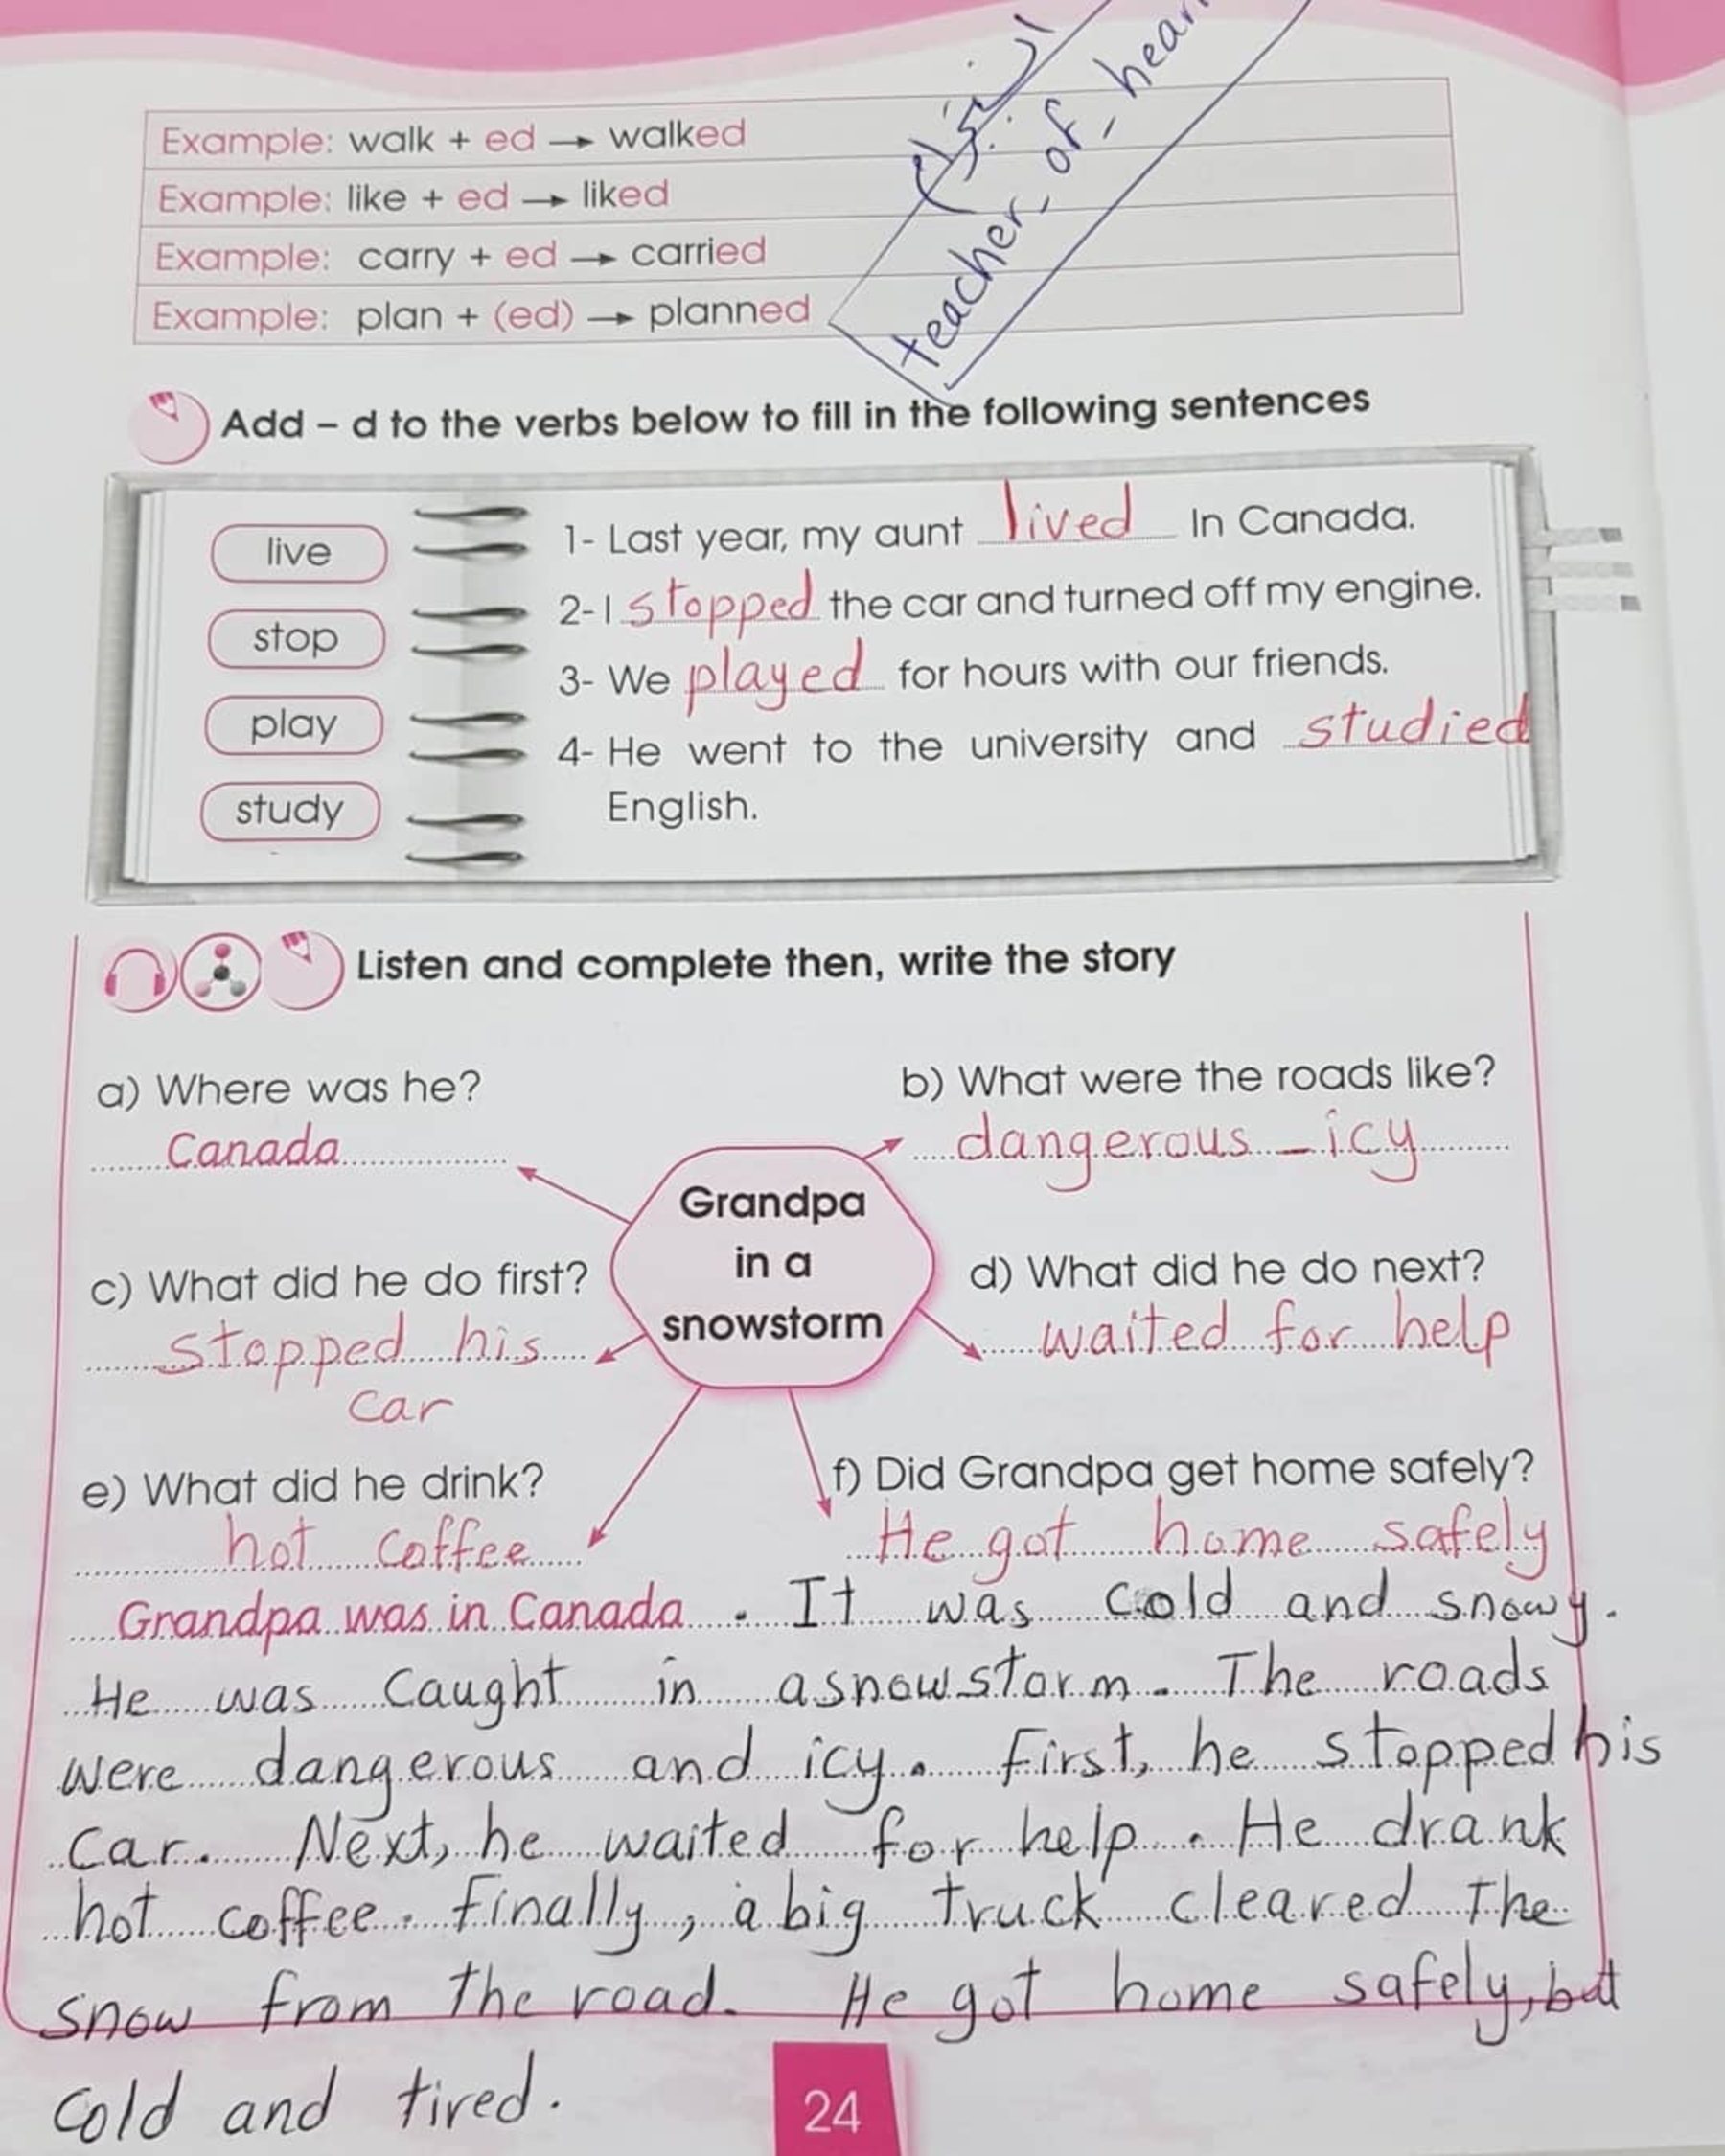 Example: walk + ed → walked
Example: like + ed → liked
Example: carry + ed → carried
Example: plan + (ed) → planned
teacher_of_hear
Add – d to the verbs below to fill in the following sentences
live
stop
play
study
1- Last year, my aunt lived In Canada.
2- I stopped the car and turned off my engine.
3- We played for hours with our friends.
4- He went to the university and studied
English.
Listen and complete then, write the story
a) Where was he?
Canada
b) What were the roads like?
dangerous – icy
Grandpa
in a
snowstorm
c) What did he do first?
stopped his
car
d) What did he do next?
waited for help
e) What did he drink?
hot coffee
f) Did Grandpa get home safely?
He got home safely
Grandpa was in Canada. It was cold and snowy.
He was caught in a snowstorm. The roads
were dangerous and icy. First, he stopped his
car. Next, he waited for help. He drank
hot coffee. Finally, a big truck cleared the
snow from the road. He got home safely, but
cold and tired.
24